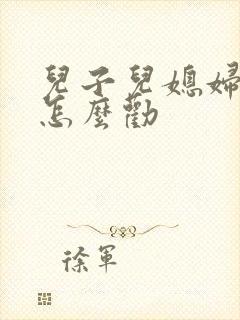 兒子兒媳婦
怎麼勸
徐軍